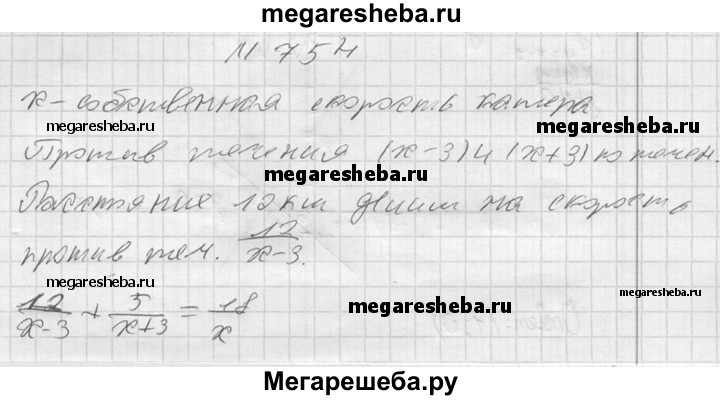 megaresheba.ru
№ 754
x - собственная скорость катера
megaresheba.ru megaresheba.ru
Против течения (x-3) и (x+3) по течен.
megaresheba.ru
Расстояние 12 км делим на скорость
против теч. 12/x-3.
megaresheba.ru
12/x-3 + 5/x+3 = 18/x
megaresheba.ru
Мегарешеба.ру